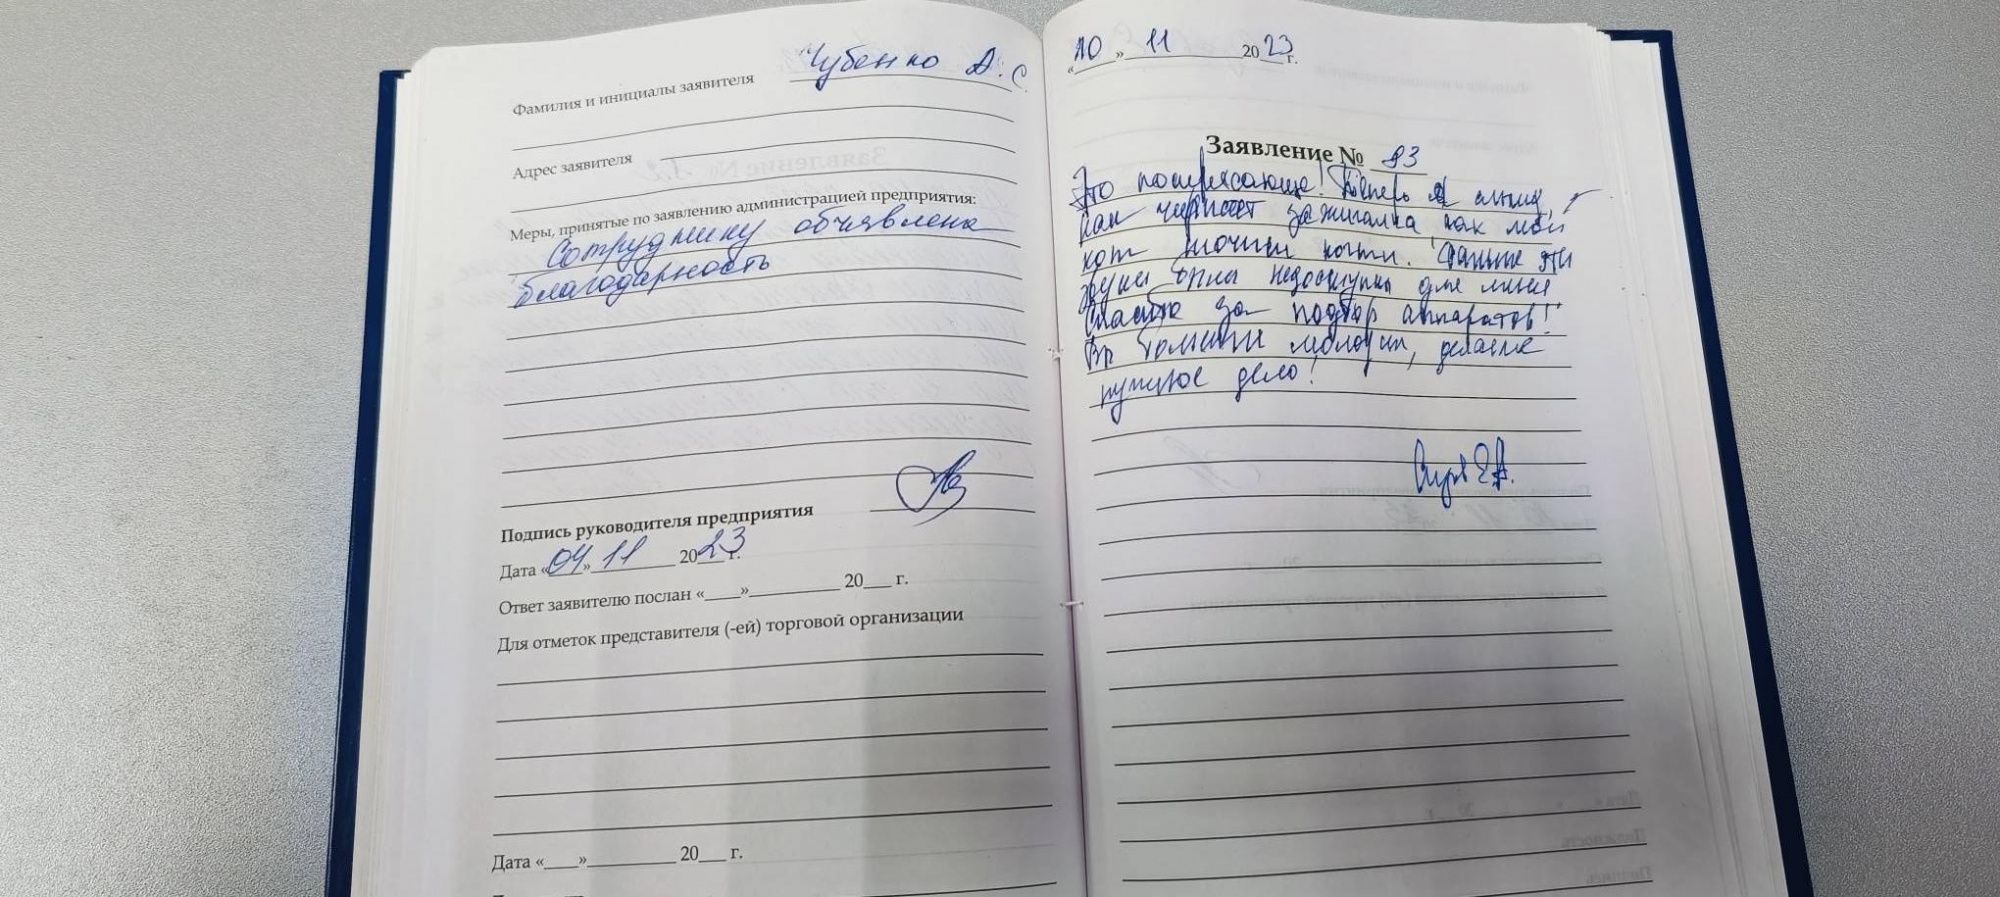 Фамилия и инициалы заявителя Чубенко А. С.
Адрес заявителя
Меры, принятые по заявлению администрацией предприятия:
Сотруднику объявлена
благодарность
Подпись руководителя предприятия
Дата «04» 11 2023 г.
Ответ заявителю послан «____»__________ 20___ г.
Для отметок представителя (-ей) торговой организации
Дата «____»__________ 20___ г.
«10» 11 2023 г.
Заявление № 93
Это потрясающе! Теперь я слышу,
как чиркает зажигалка, как мой
кот точит когти. Раньше эти
звуки были недоступны для меня
Спасибо за подбор аппаратов!
Вы большие молодцы, делаете
нужное дело!